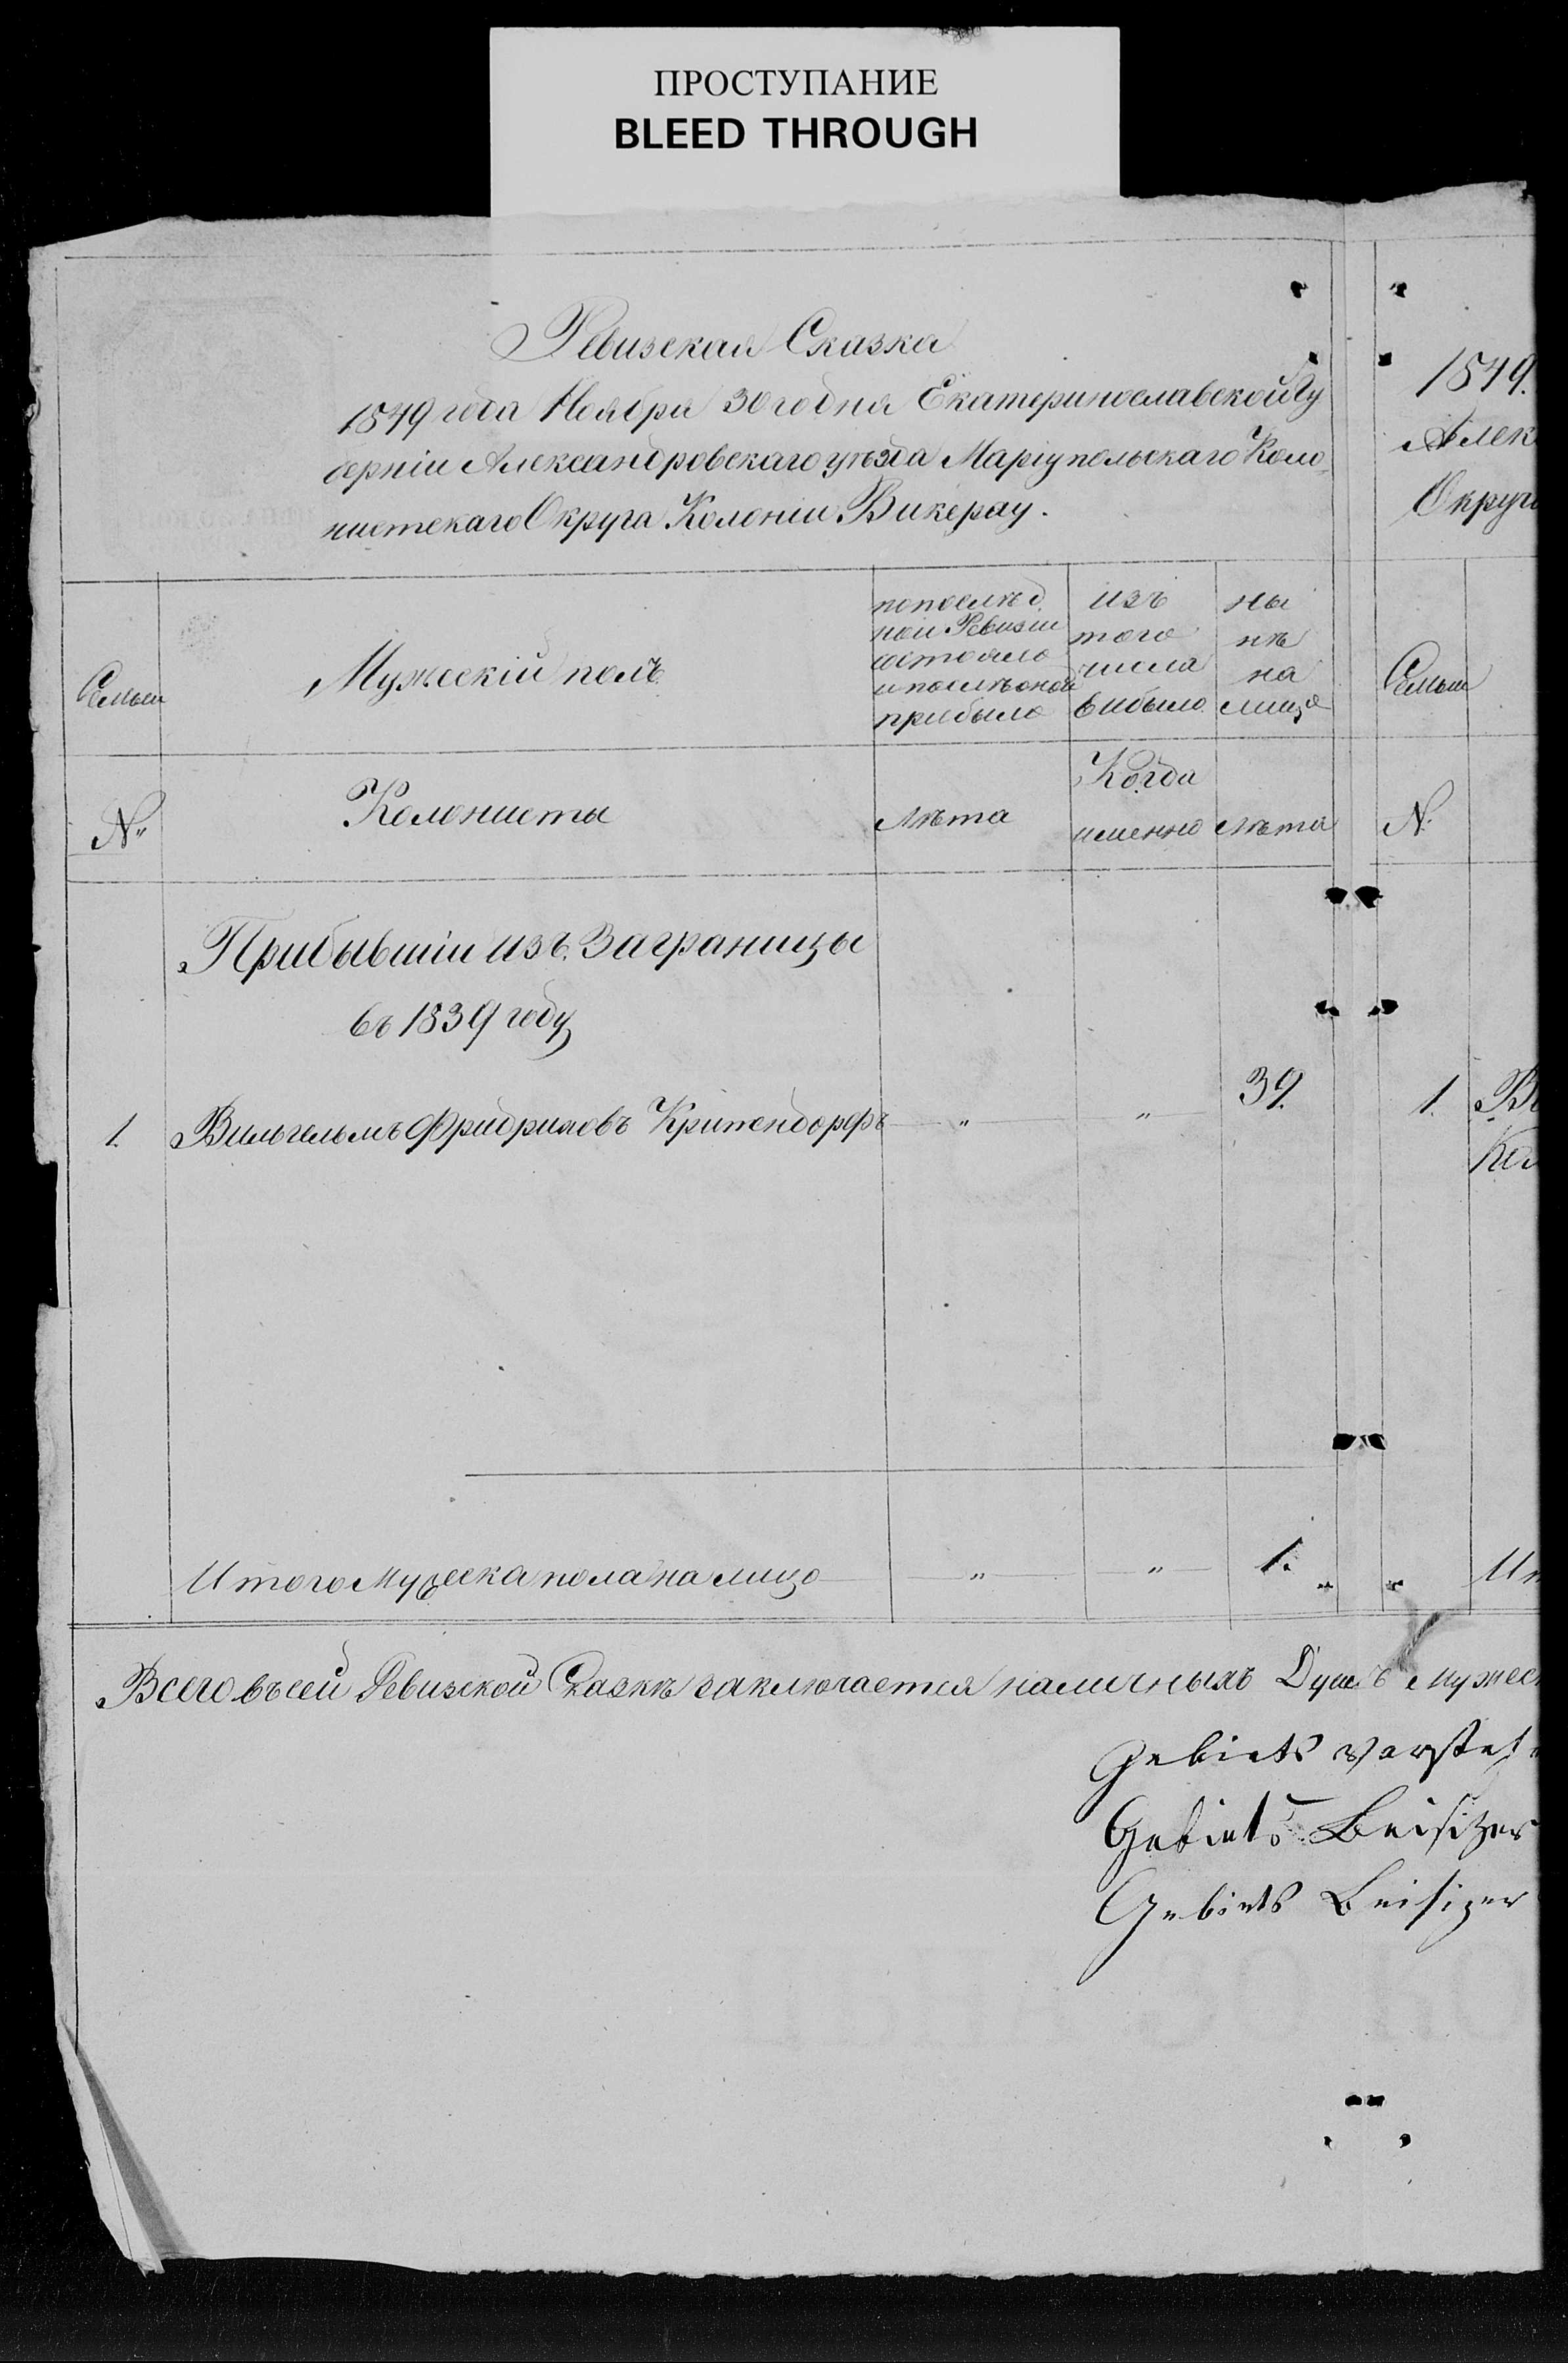 ПРОСТУПАНИЕ
BLEED THROUGH
Ревизская Сказка
1849 года Ноября 30 го дня Екатеринославской Гу
берніи Александровскаго уѣзда Маріупольскаго Коло
нистскаго Округа Колоніи Викерау.
Семьи
Мужескій полъ
по послѣд.
ной Ревизіи
состояло
и послѣ оной
прибыло
изъ
того
числа
выбыло
ны
нѣ
на
лицо
№
Колонисты
Лѣта
Когда
именно
лѣта
Прибывшіи изъ Заграницы
въ 1839 году
1. Вильгельмъ Фридриховъ Критендорфъ — " — " — 39.
Итого мужеска пола на лицо — " — " — 1.
Всего въ сей Ревизской Сказкѣ заключается наличныхъ Душъ мужес
Gebiets Vorsteh
Gebiets Beisitzer
Gebiets Beisizer
1849.
Алек
Округа
Семьи
№
1. Ви
Кол
Ит